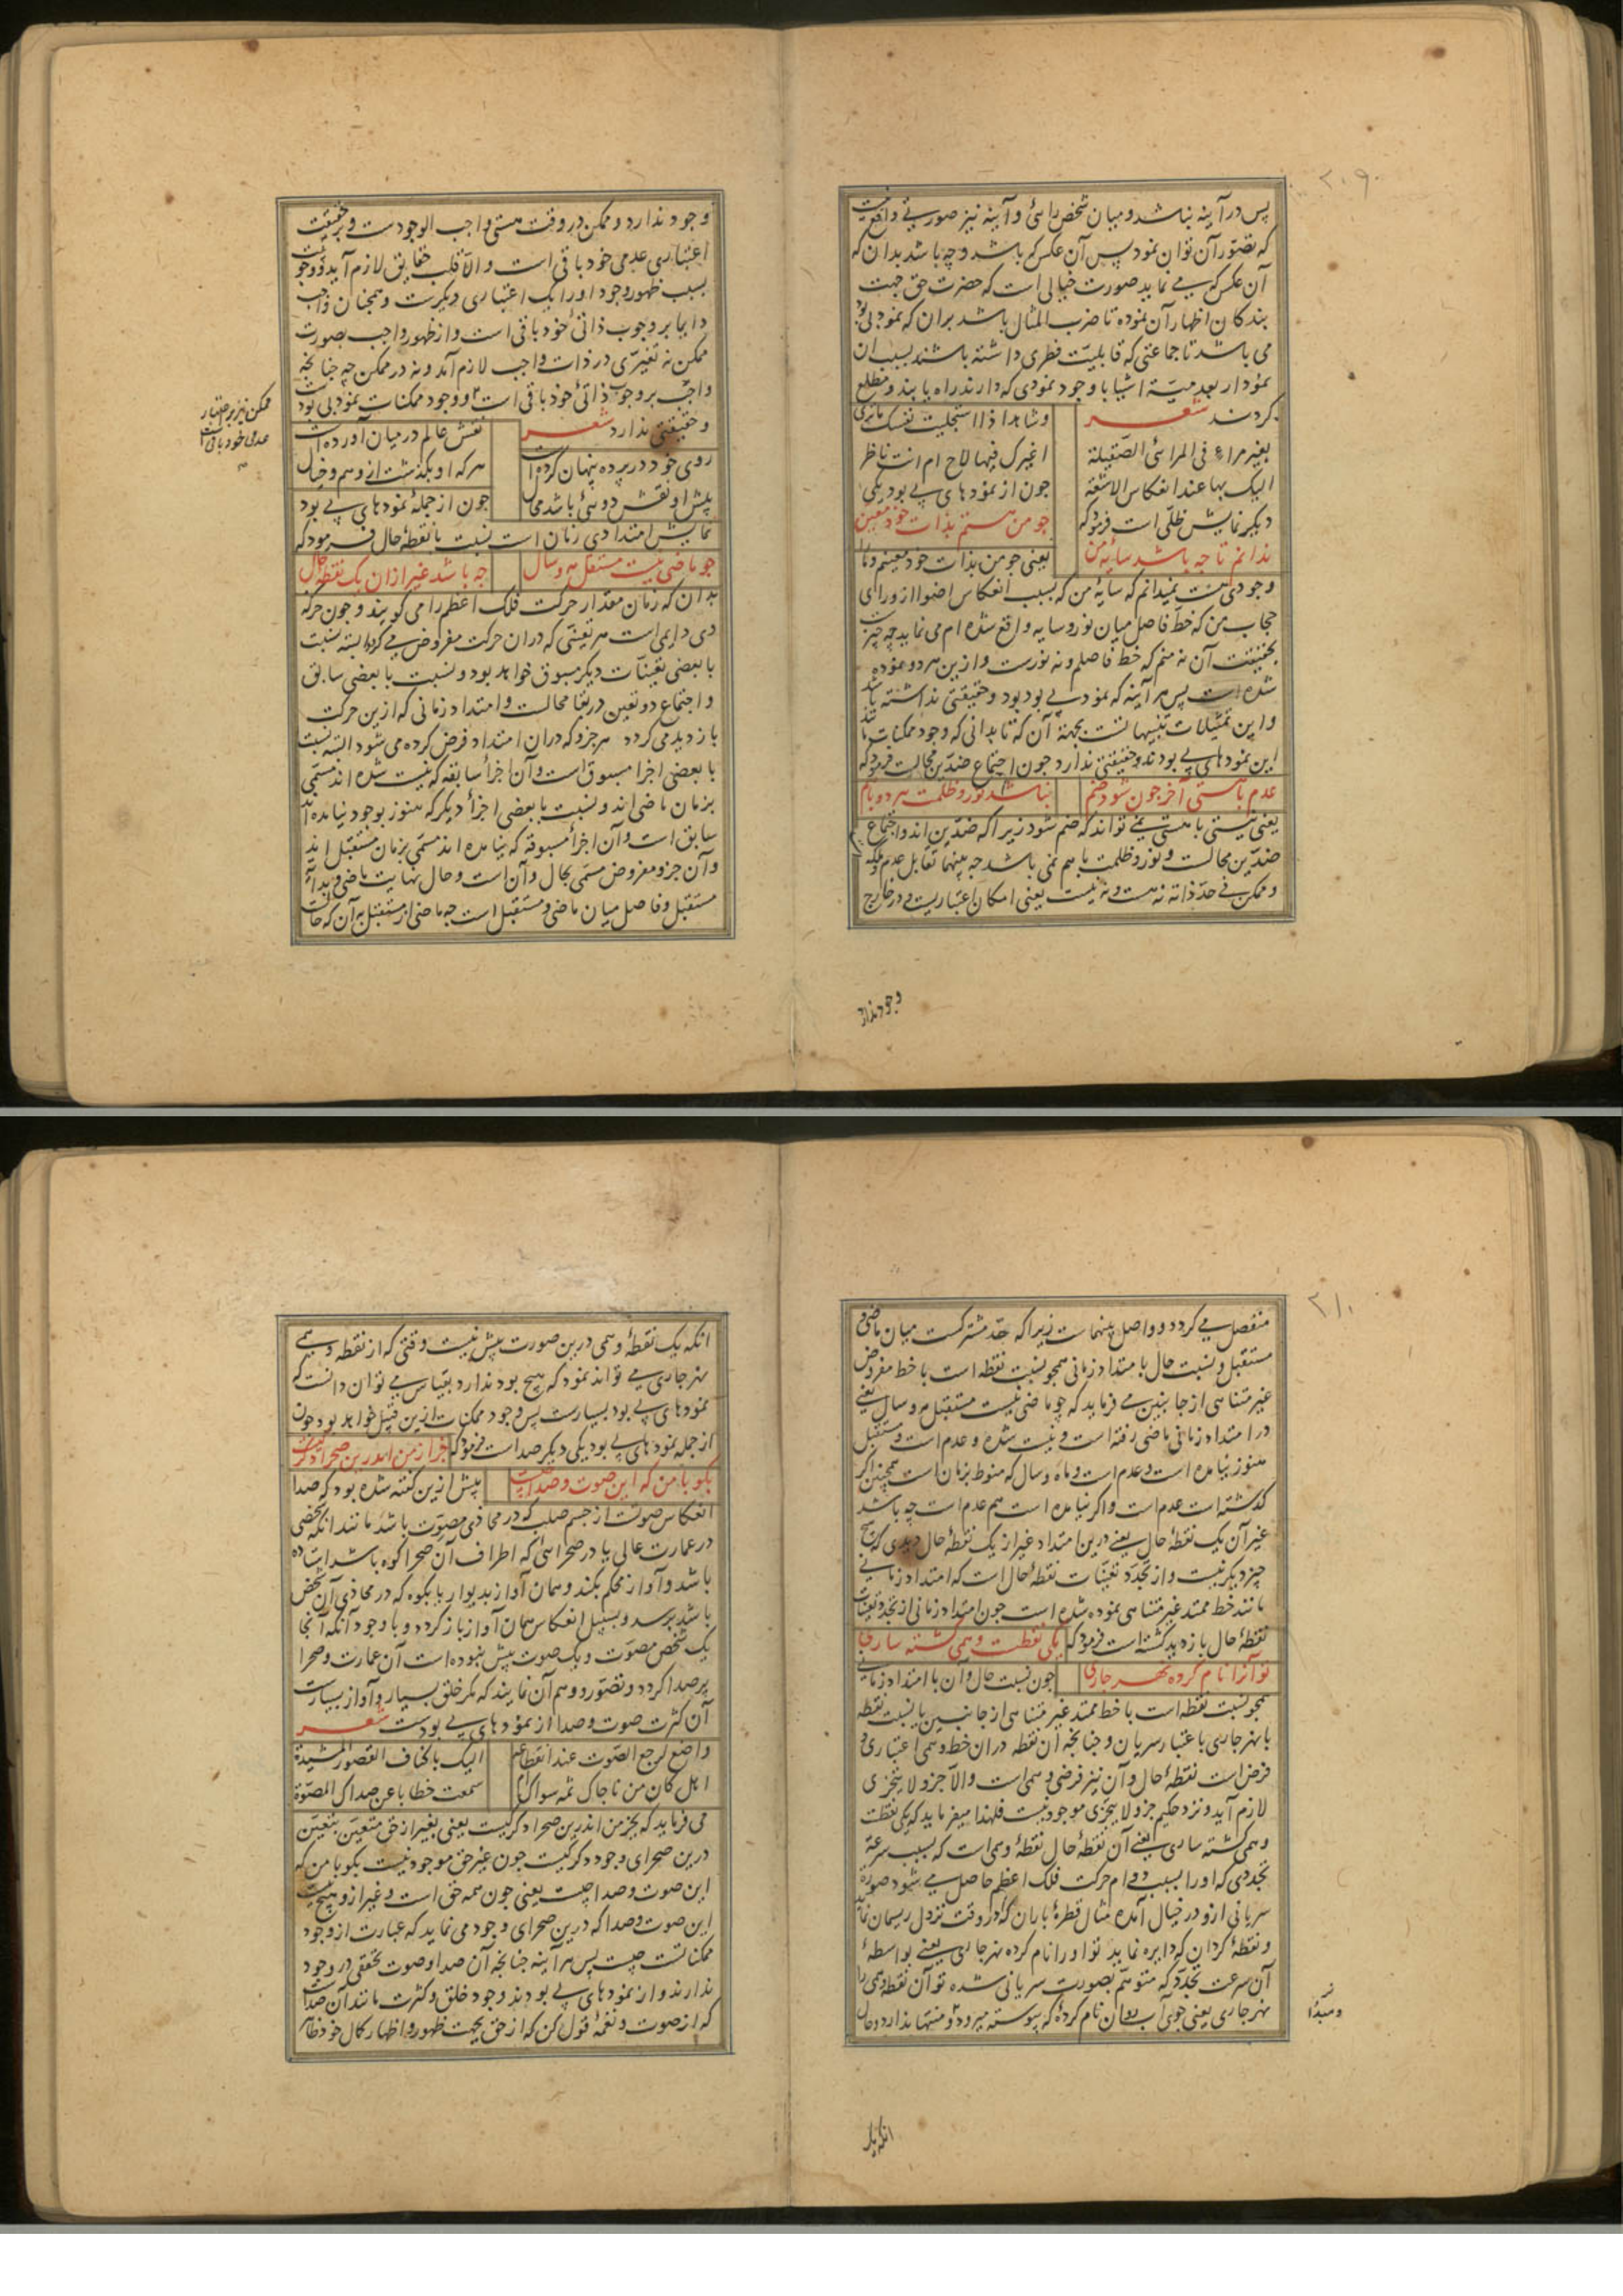 ۲۰۹
پس در آینه نباشد و میان شخص رائی و آینه نیز صورتی واقع نیست
که تصور آن توان نمود پس آن عکس که باشد و چه باشد بدان که
آن عکس که می نماید صورت خیالی است که حضرت حق جهت
بندکان اظهار آن نموده تا ضرب المثال باشد بر آن که نمود بی بود
می باشد تا جماعتی که قابلیت فطری داشته باشند بسبب ان
نمودار بعدمیة اشیا با وجود نمودی که دارند راه یابند و مطلع
کردند شعر
وشاهد اذا استجلیت نفسک ما تری
بغیر مراء فی المرائی الصقیلة
اغیرک فیها لاح ام انت ناظر
الیک بها عند انعکاس الاشعة
جون از نمودهای بی بود یکی
دیکر نمایش ظلی است فرمود که
جو من هستم بذات خود معین
ندانم تا جه باشد سایه من
یعنی جو من بذات خود معینم و با
وجودی است نمیدانم که سایه من که بسبب انعکاس اضوا از ورای
حجاب من که خط فاصل میان نور و سایه واقع شده ام می نماید چه چیز است
بحقیقت آن نه منم که خط فاصلم و نه نورست و ازین هر دو نموده
شده است پس هر آینه که نمود بی بود بود و حقیقتی نداشته باشد
و این تمثیلات تنبیهاتست بجهة آن که تا بدانی که وجود ممکنات مانند
این نمودهای بی بودند و حقیقتی ندارد جون اجتماع ضدین محالست فرمود که
عدم با هستی آخر جون شود ضم
نباشد نور و ظلمت هر دو با هم
یعنی نیستی با هستی نمی تواند که ضم شود زیرا که ضدین اند و اجتماع
ضدین محالست و نور و ظلمت با هم نمی باشد جه بینهما تقابل عدم و ملکه
و ممکن فی حد ذاته نه هست و نه نیست یعنی امکان اعتباریست و در خارج
وجود ندارد
وجود ندارد و ممکن در وقت هستی واجب الوجودست و بر حقیقت
اعتباری عدمی خود باقی است و الا قلب حقایق لازم آید و وجوبیت
بسبب ظهور وجود او را یک اعتباری دیکرست و همچنان واجب
دایما بر وجوب ذاتی خود باقی است و از ظهور واجب بصورت
ممکن نه تغیری در ذات واجب لازم آمد و نه در ممکن چه جنانجه
واجب بر وجوب ذاتی خود باقی است و وجود ممکنات نمود بی بودست
ممکن نیز بر اعتبار
عدمی خود باقی است
و حقیقتی ندارد شعر
نقش عالم در میان آورده است
روی خود در پرده پنهان کرده است
هر که او بکذشت از وهم و خیال
پیش او نقش دوئی باشد محال
جون از جمله نمودهای بی بود
نمایش امتدادی زمان است نسبت با نقطه حال فرمود که
جو ماضی نیست مستقبل مه و سال
جه باشد غیر از ان یک نقطه حال
بدان که زمان مقدار حرکت فلک اعظم را می کویند و جون حرکت
وی دایمی است هر تعینی که در ان حرکت مفروض می کردد البته نسبت
با بعضی تعینات دیکر مسبوق خواهد بود و نسبت با بعضی سابق
و اجتماع دو تعین در بقا محالست و امتداد زمانی که ازین حرکت
بازدید می کردد هر جزو که در ان امتداد فرض کرده می شود البته نسبت
با بعضی اجزا مسبوق است و آن اجزاء سابقه که نیست شده اند مسمی
بزمان ماضی اند و نسبت با بعضی اجزاء دیکر که هنوز بوجود نیامده اند
سابق است و آن اجزاء مسبوقه که نیامده اند مسمی بزمان مستقبل اند
و آن جزو مفروض مسمی بحال و آن است و حال نهایت ماضی و بدایة
مستقبل و فاصل میان ماضی و مستقبل است جه ماضی از مستقبل به آن که حالست
۲۱۰
منفصل می کردد و واصل بینهماست زیرا که حد مشترکست میان ماضی و
مستقبل و نسبت حال با امتداد زمانی همچو نسبت نقطه است با خط مفروض
غیر متناهی از جانبین می فرماید که چو ماضی نیست مستقبل مه و سال یعنی
در امتداد زمانی ماضی رفته است و نیست شده و عدم است و مستقبل
هنوز نیامده است و عدم است و ماه و سال که منوط بزمان است همچنین اکر
کذشته است عدم است و اکر نیامده است هم عدم است چه باشد
غیر آن یک نقطه حال یعنی درین امتداد غیر از یک نقطه حال دیدی که هیچ
چیز دیکر نیست و از تجدد تعینات نقطه حال است که امتداد زمانی
مانند خط ممتد غیر متناهی نموده شده است جون امتداد زمانی از تجدد تعینات
نقطه حال بازدید کشته است فرمود که یکی نقطست وهمی کشته ساری
تو آنرا نام کرده نهر جاری
جون نسبت حال و آن با امتداد زمانی
همچو نسبت نقطه است با خط ممتد غیر متناهی از جانبین یا نسبت نقطه
با نهر جاری باعتبار سریان و جنانچه آن نقطه در ان خط وهمی اعتباری و
فرض است نقطه حال و آن نیز فرضی وهمی است و الا جزو لا یتجزی
لازم آید و نزد حکیم جزو لا یتجزی موجود نیست فلهذا میفرماید که یکی نقطست
وهمی کشته ساری یعنی آن نقطه حال نقطه وهمی است که بسبب سرعة
تجددی که او را بسبب دوام حرکت فلک اعظم حاصل می شود صورة
سریانی ازو در خیال آمده مثال قطره باران که در وقت نزول ریسمان نماید
و نقطه کردان که دایره نماید تو او را نام کرده نهر جاری یعنی بواسطه
آن سرعت تجدد که متوهم بصورت سریانی شده تو آن نقطه وهمی را
نهر جاری یعنی جوی آب روان نام کرده که پیوسته میرود و منتها ندارد و حال
و مبدا
انکه یک
انکه یک نقطه وهمی درین صورت بیش نیست وقتی که از نقطه وهمی
نهر جاری می تواند نمود که هیچ بود ندارد بقیاس می توان دانست که
نمودهای بی بود بسیارست پس وجود ممکنات ازین قبیل خواهد بود جون
از جمله نمودهای بی بود یکی دیکر صدا است فرمود که جز از من اندرین صحرا دکر کیست
بکو با من که این صوت و صدا چیست
پیش ازین کفته شده بود که صدا
انعکاس صوتست از جسم صلب که در محاذی مصوت باشد مانند انکه شخصی
در عمارت عالی یا در صحرائی که اطراف آن صحرا کوه باشد ایستاده
باشد و آواز محکم بکند و همان آواز بدیوار یا بکوه که در محاذی آن شخص
باشد برسد و بسبیل انعکاس همان آواز باز کردد و با وجود آنکه آنجا
یک شخص مصوت و یک صوت بیش نبوده است آن عمارت و صحرا
پر صدا کردد و تصور و وهم آن نمایند که مکر خلق بسیار و آواز بسیارست
آن کثرت صوت و صدا از نمودهای بی بودست شعر
واصغ لرجع الصوت عند انقطاعه
الیک باکناف القصور المشیدة
اهل کان من ناجاک ثمه سواک ام
سمعت خطابا عن صداک المصوتة
می فرماید که بجز من اندرین صحرا دکر کیست یعنی بغیر از حق متعین بتعین
درین صحرای وجود دکر کیست جون غیر حق موجود نیست بکو با من که
این صوت و صدا چیست یعنی جون همه حق است و غیر ازو هیچ نیست
این صوت و صدا که درین صحرای وجود می نماید که عبارت از وجود
ممکناتست چیست پس هر آینه جنانچه آن صدا و صوت تحققی در وجود
ندارند و از نمودهای بی بودند وجود خلق و کثرت مانند آن صداست
که از صوت و نغمه قول کن که از حق بجهت ظهور و اظهار کمال خود ظاهر